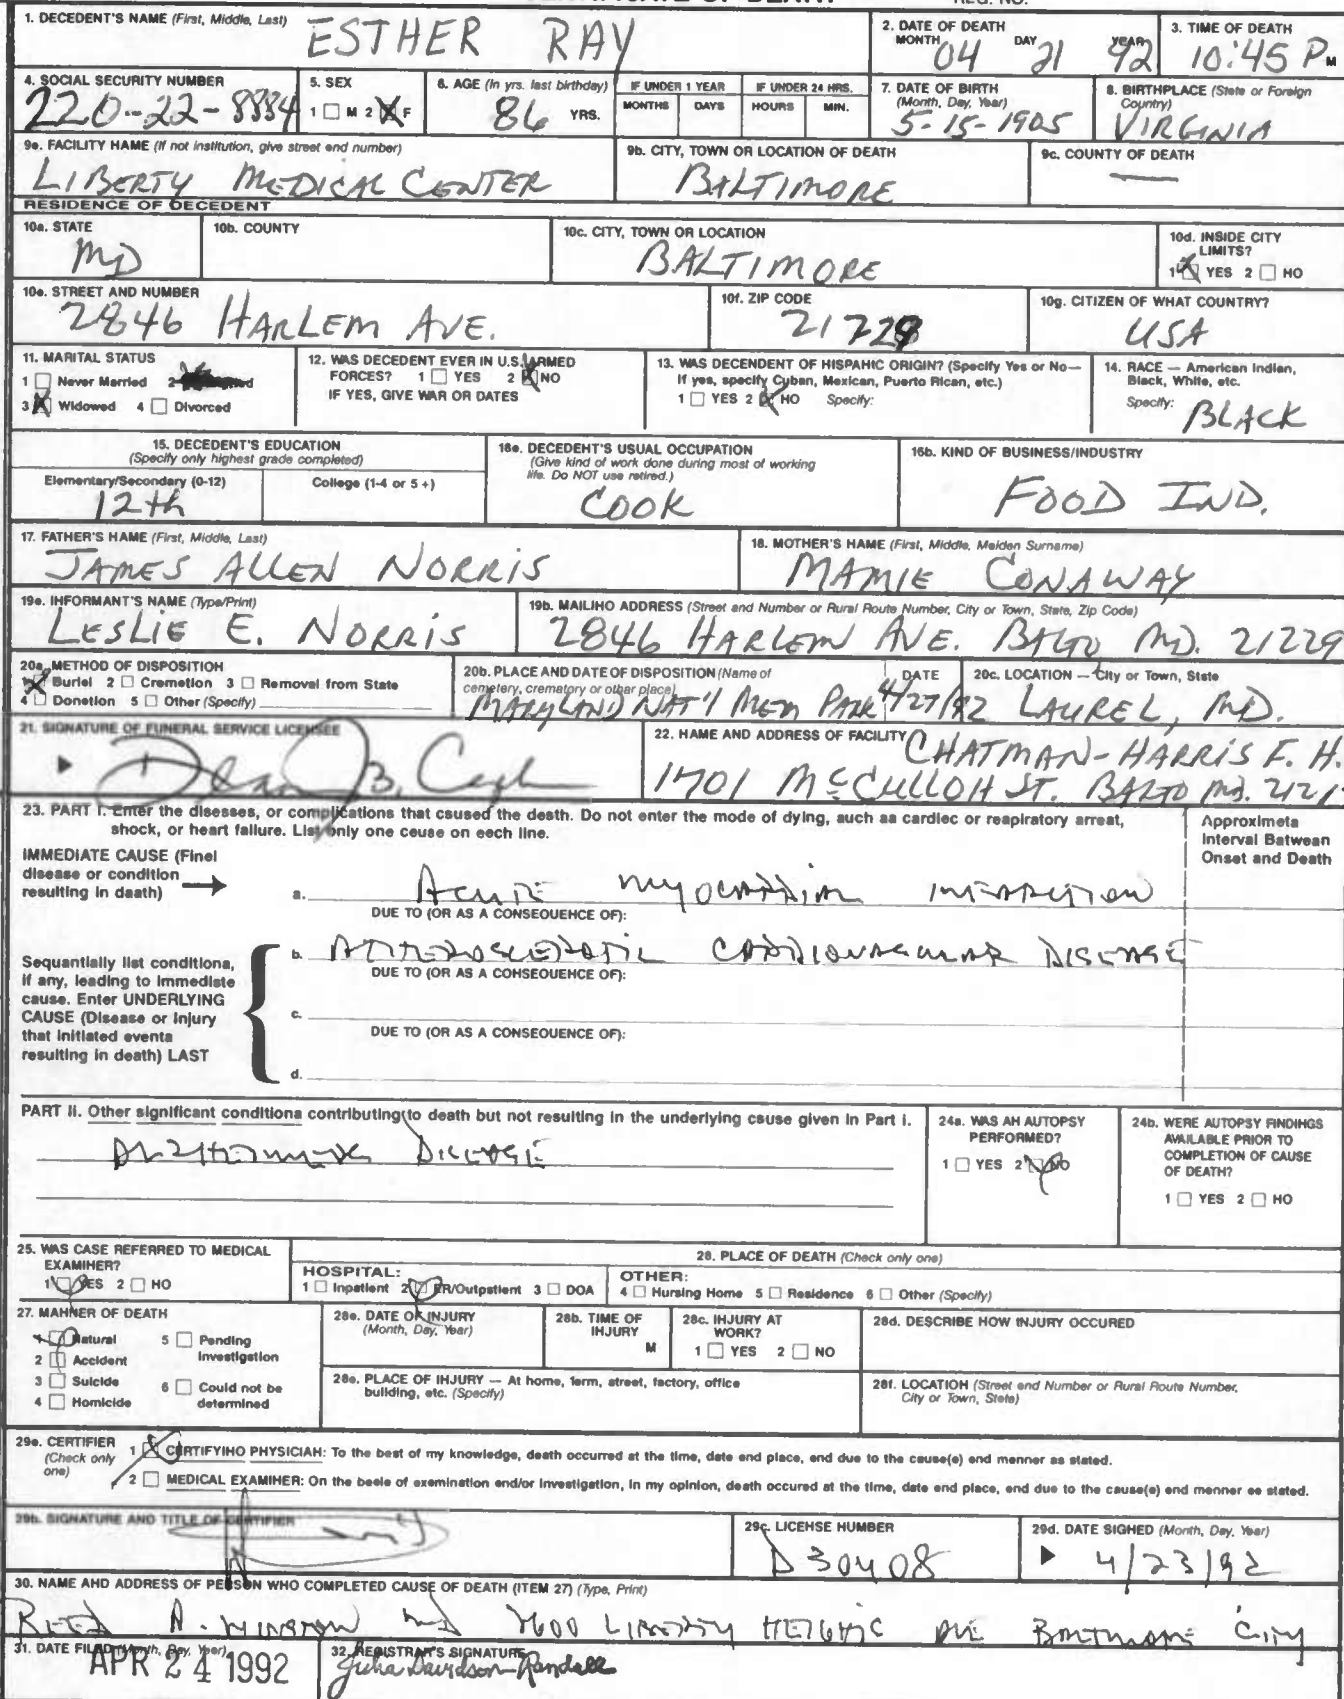 1. DECEDENT'S NAME (First, Middle, Last) ESTHER RAY
2. DATE OF DEATH MONTH DAY YEAR 04 21 92
3. TIME OF DEATH 10:45 P M
4. SOCIAL SECURITY NUMBER 220-22-8884
5. SEX 1 M 2 X F
6. AGE (In yrs. last birthday) 86 YRS.
IF UNDER 1 YEAR MONTHS DAYS
IF UNDER 24 HRS. HOURS MIN.
7. DATE OF BIRTH (Month, Day, Year) 5-15-1905
8. BIRTHPLACE (State or Foreign Country) VIRGINIA
9a. FACILITY NAME (If not institution, give street and number) LIBERTY MEDICAL CENTER
9b. CITY, TOWN OR LOCATION OF DEATH BALTIMORE
9c. COUNTY OF DEATH —
RESIDENCE OF DECEDENT
10a. STATE MD
10b. COUNTY
10c. CITY, TOWN OR LOCATION BALTIMORE
10d. INSIDE CITY LIMITS? 1 X YES 2 NO
10e. STREET AND NUMBER 2846 HARLEM AVE.
10f. ZIP CODE
10g. CITIZEN OF WHAT COUNTRY? USA
11. MARITAL STATUS
1 Never Married 2
3 X Widowed 4 Divorced
12. WAS DECEDENT EVER IN U.S. ARMED FORCES? 1 YES 2 X NO
IF YES, GIVE WAR OR DATES
13. WAS DECENDENT OF HISPANIC ORIGIN? (Specify Yes or No—
If yes, specify Cuban, Mexican, Puerto Rican, etc.)
1 YES 2 X NO Specify:
14. RACE — American Indian, Black, White, etc.
Specify: BLACK
15. DECEDENT'S EDUCATION
(Specify only highest grade completed)
Elementary/Secondary (0-12) 12th
College (1-4 or 5+)
16a. DECEDENT'S USUAL OCCUPATION
(Give kind of work done during most of working life. Do NOT use retired.)
COOK
16b. KIND OF BUSINESS/INDUSTRY
FOOD IND.
17. FATHER'S NAME (First, Middle, Last) JAMES ALLEN NORRIS
18. MOTHER'S NAME (First, Middle, Maiden Surname) MAMIE CONAWAY
19a. INFORMANT'S NAME (Type/Print) LESLIE E. NORRIS
19b. MAILING ADDRESS (Street and Number or Rural Route Number, City or Town, State, Zip Code)
2846 HARLEM AVE. BALTO MD. 21229
20a. METHOD OF DISPOSITION
1 X Burial 2 Cremation 3 Removal from State
4 Donation 5 Other (Specify)
20b. PLACE AND DATE OF DISPOSITION (Name of cemetery, crematory or other place) DATE
MARYLAND NAT'l MEM PARK 4/27/92
20c. LOCATION — City or Town, State
LAUREL, MD.
21. SIGNATURE OF FUNERAL SERVICE LICENSEE
22. NAME AND ADDRESS OF FACILITY CHATMAN-HARRIS F. H.
1701 McCULLOH ST. BALTO MD.
23. PART I. Enter the diseases, or complications that caused the death. Do not enter the mode of dying, such as cardiac or respiratory arrest,
shock, or heart failure. List only one cause on each line.
Approximate Interval Between Onset and Death
IMMEDIATE CAUSE (Final disease or condition resulting in death)
a. ACUTE MYOCARDIAL INFARCTION
DUE TO (OR AS A CONSEQUENCE OF):
Sequentially list conditions, if any, leading to immediate cause. Enter UNDERLYING CAUSE (Disease or injury that initiated events resulting in death) LAST
b. ATHEROSCLEROTIC CARDIOVASCULAR DISEASE
DUE TO (OR AS A CONSEQUENCE OF):
c.
DUE TO (OR AS A CONSEQUENCE OF):
d.
PART II. Other significant conditions contributing to death but not resulting in the underlying cause given in Part I.
ALZHEIMERS DISEASE
24a. WAS AN AUTOPSY PERFORMED?
1 YES 2 NO
24b. WERE AUTOPSY FINDINGS AVAILABLE PRIOR TO COMPLETION OF CAUSE OF DEATH?
1 YES 2 NO
25. WAS CASE REFERRED TO MEDICAL EXAMINER?
1 YES 2 NO
26. PLACE OF DEATH (Check only one)
HOSPITAL:
1 Inpatient 2 ER/Outpatient 3 DOA
OTHER:
4 Nursing Home 5 Residence 6 Other (Specify)
27. MANNER OF DEATH
1 Natural 5 Pending Investigation
2 Accident
3 Suicide 6 Could not be determined
4 Homicide
28a. DATE OF INJURY (Month, Day, Year)
28b. TIME OF INJURY M
28c. INJURY AT WORK? 1 YES 2 NO
28d. DESCRIBE HOW INJURY OCCURED
28e. PLACE OF INJURY — At home, farm, street, factory, office building, etc. (Specify)
28f. LOCATION (Street and Number or Rural Route Number, City or Town, State)
29a. CERTIFIER (Check only one)
1 X CERTIFYING PHYSICIAN: To the best of my knowledge, death occurred at the time, date and place, and due to the cause(s) and manner as stated.
2 MEDICAL EXAMINER: On the basis of examination and/or investigation, in my opinion, death occured at the time, date and place, and due to the cause(s) and manner as stated.
29b. SIGNATURE AND TITLE OF CERTIFIER
29c. LICENSE NUMBER D30408
29d. DATE SIGNED (Month, Day, Year) 4/23/92
30. NAME AND ADDRESS OF PERSON WHO COMPLETED CAUSE OF DEATH (ITEM 27) (Type, Print)
REED A. WINSTON MD LIBERTY HEIGHTS AVE BALTIMORE CITY
31. DATE FILED (Month, Day, Year) APR 24 1992
32. REGISTRAR'S SIGNATURE Julia Davidson-Randall